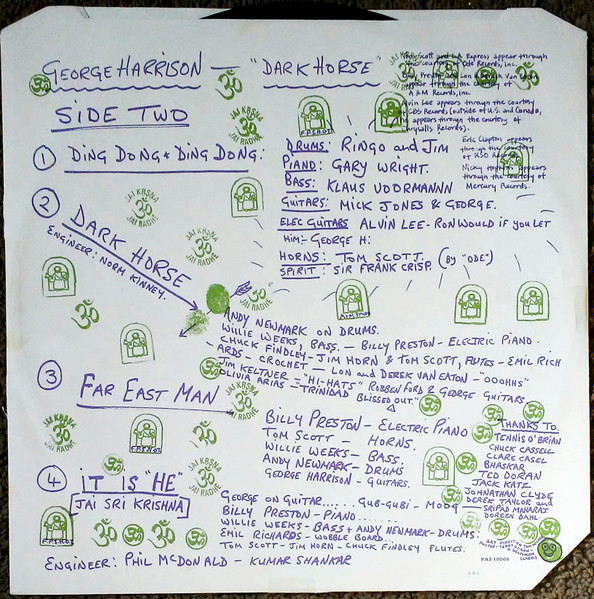 GEORGE HARRISON — "DARK HORSE"
SIDE TWO
① DING DONG * DING DONG:
DRUMS: RINGO AND JIM
PIANO: GARY WRIGHT.
BASS: KLAUS VOORMANNN
GUITARS: MICK JONES & GEORGE.
ELEC GUITARS ALVIN LEE - RON WOULD IF YOU LET
HIM:- GEORGE H:
HORNS: TOM SCOTT. (BY "ODE")
SPIRIT: SIR FRANK CRISP.
② DARK HORSE
ENGINEER: NORM KINNEY.
ANDY NEWMARK ON DRUMS.
WILLIE WEEKS, BASS. — BILLY PRESTON - ELECTRIC PIANO.
CHUCK FINDLEY - JIM HORN & TOM SCOTT, FLUTES - EMIL RICH
-ARDS - CROCHET — LON AND DEREK VAN EATON - "OOOHHS"
JIM KELTNER - "HI-HATS" ROBBEN FORD & GEORGE GUITARS
OLIVIA ARIAS - "TRINIDAD BLISSED OUT."
③ FAR EAST MAN
BILLY PRESTON - ELECTRIC PIANO
TOM SCOTT - HORNS.
WILLIE WEEKS - BASS.
ANDY NEWMARK - DRUMS
GEORGE HARRISON - GUITARS.
④ IT IS "HE"
JAI SRI KRISHNA
GEORGE ON GUITAR..... GUB-GUBI - MOOG
BILLY PRESTON - PIANO.....
WILLIE WEEKS - BASS + ANDY NEWMARK - DRUMS.
EMIL RICHARDS - WOBBLE BOARD...
TOM SCOTT - JIM HORN - CHUCK FINDLEY FLUTES.
ENGINEER: PHIL McDONALD - KUMAR SHANKAR
Tom Scott and L.A. Express appear through
the courtesy of Ode Records, Inc.
Billy Preston and Lon & Derek Van Eaton
appear through the courtesy of
A & M Records, Inc.
Alvin Lee appears through the courtesy
of CBS Records (outside of U.S. and Canada,
he appears through the courtesy of
Chrysalis Records).
Eric Clapton appears
through the courtesy
of RSO Records.
Nicky Hopkins appears
through the courtesy of
Mercury Records.
THANKS TO
TENNIS O'BRIAN
CHUCK CASSELL
CLARE CASEL
BHASKAR
TED DORAN
JACK KATZ
JOHNATHAN CLYDE
DEREK TAYLOR AND
SRIPAD MAHARAJ.
DOREEN DAHL.
PAS 10008
JAI KRSNA
ॐ
JAI RADHE
F.P.S.H.O.T.